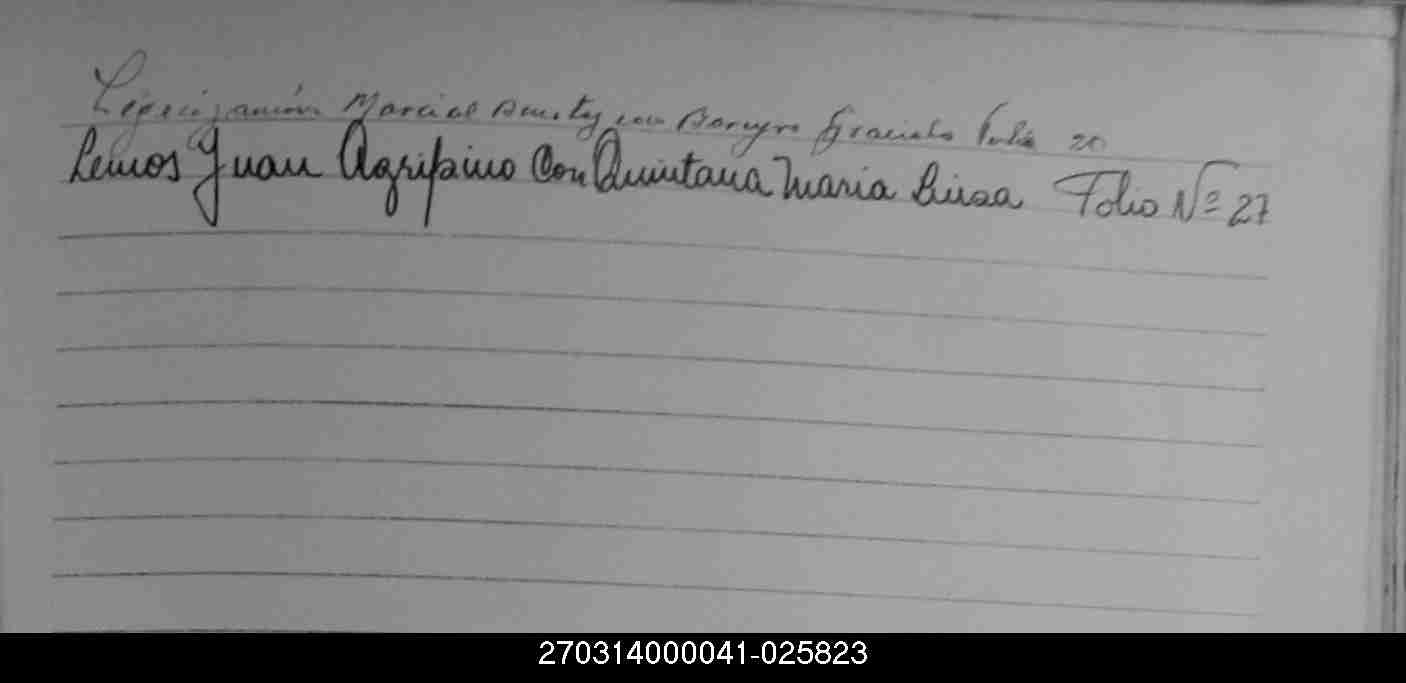 Marcial con Graciela Folio 20
Lemos Juan Agripino Con Quintana Maria Luisa Folio Nº 27
270314000041-025823